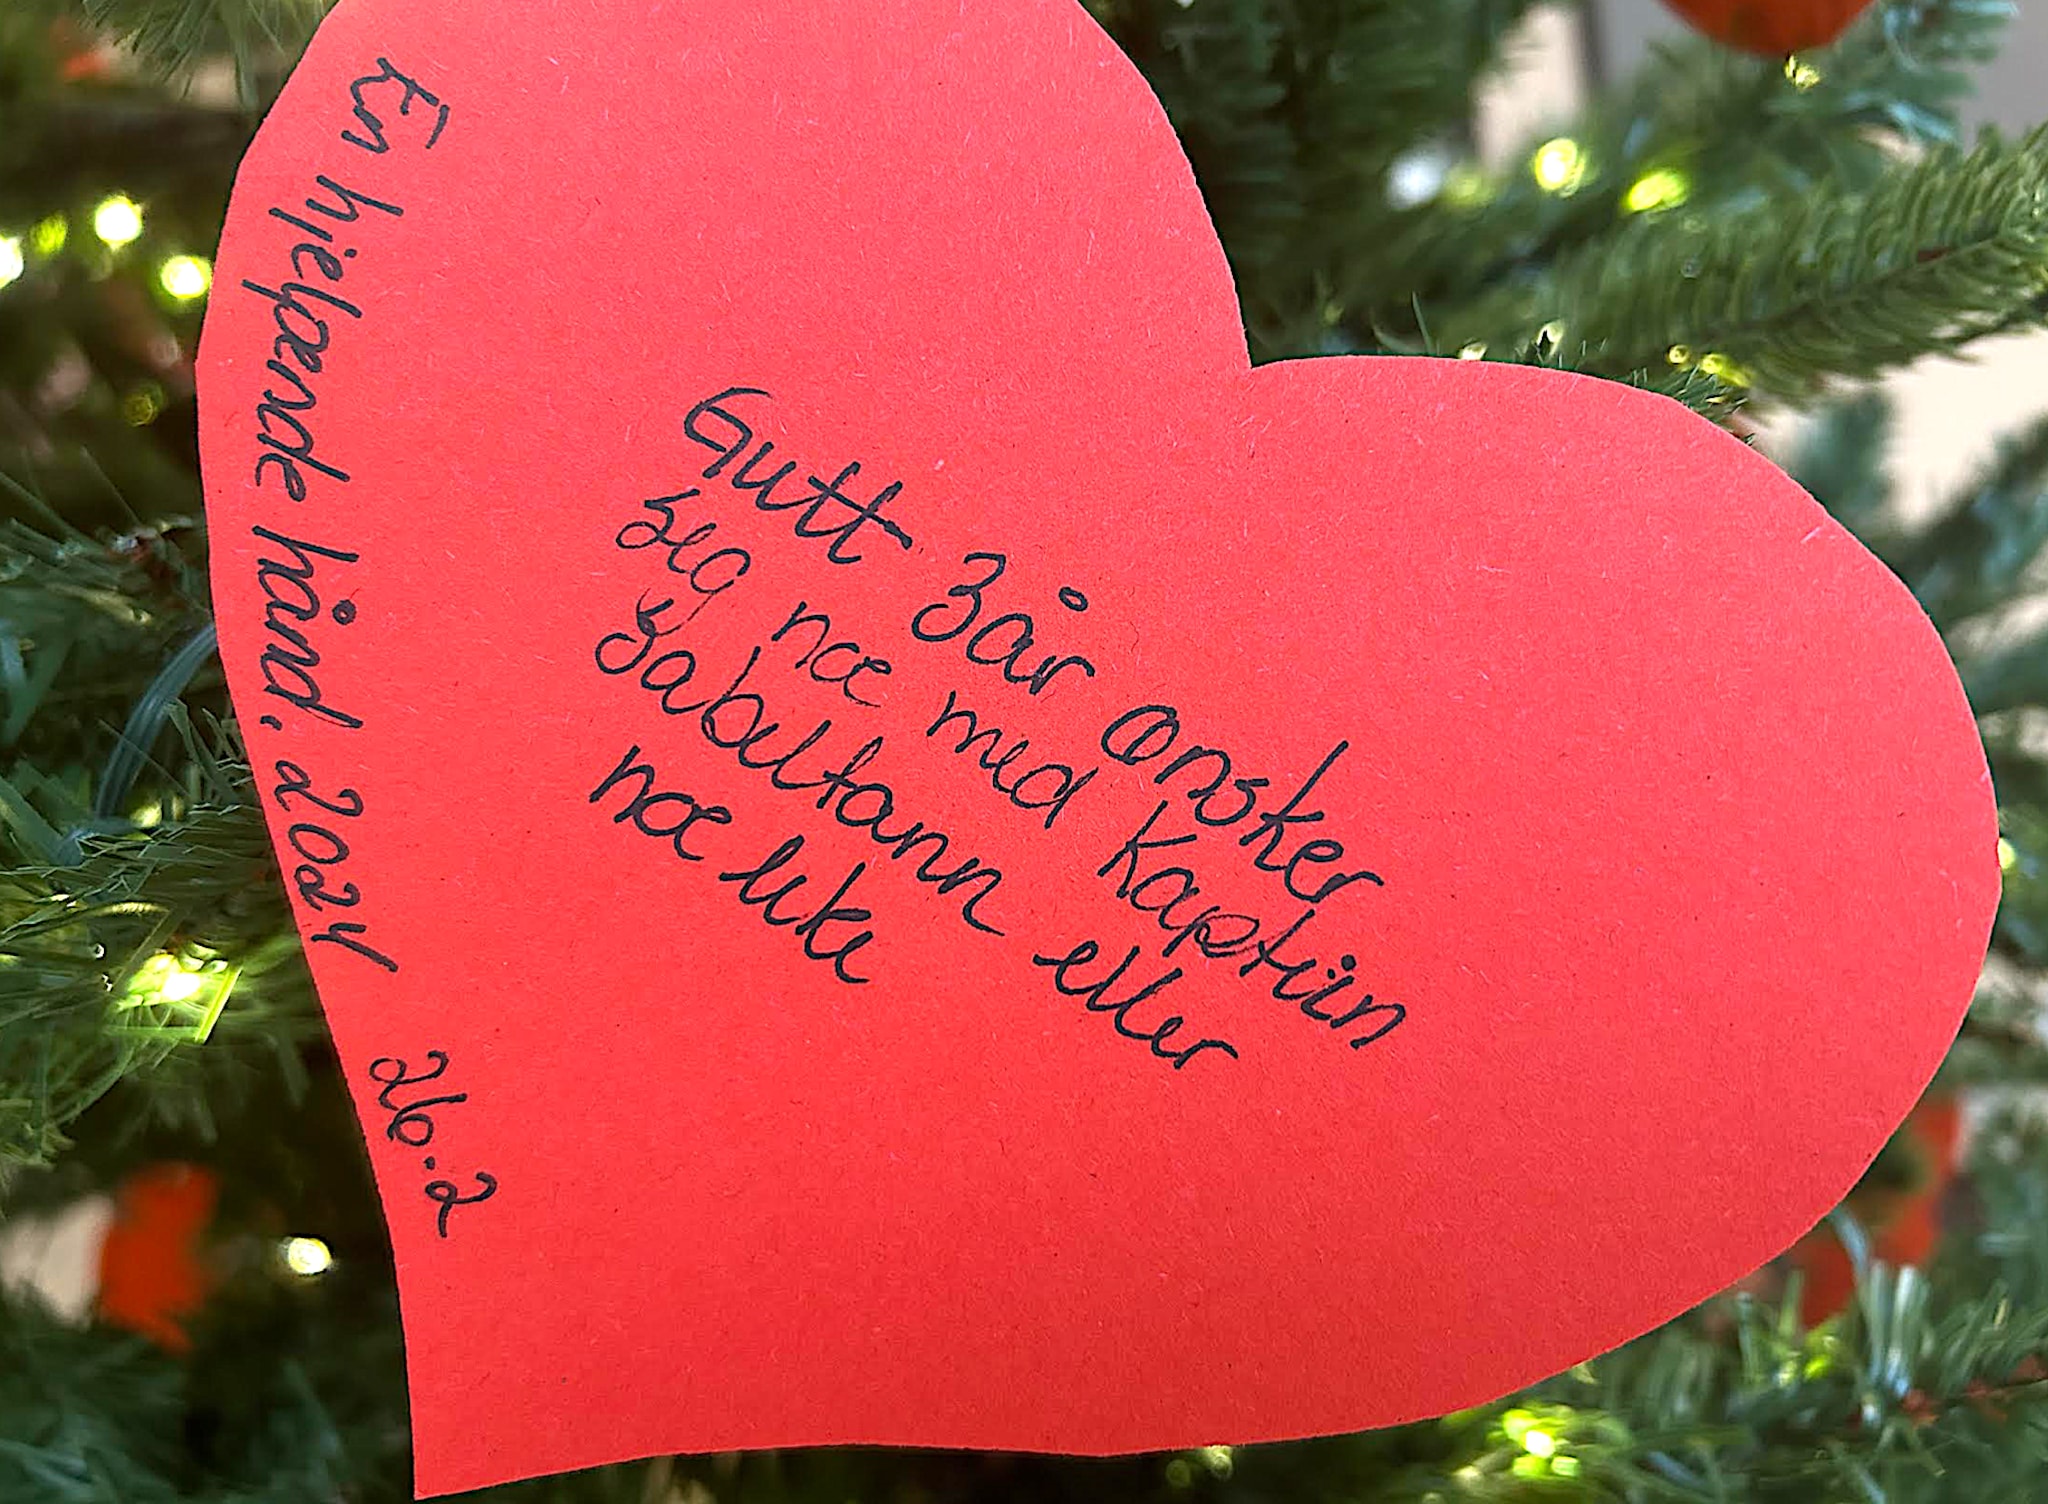 Gutt 3år ønsker
seg noe med Kaptein
Sabeltann eller
noe like
En hjelpende hånd, 2024 26.2